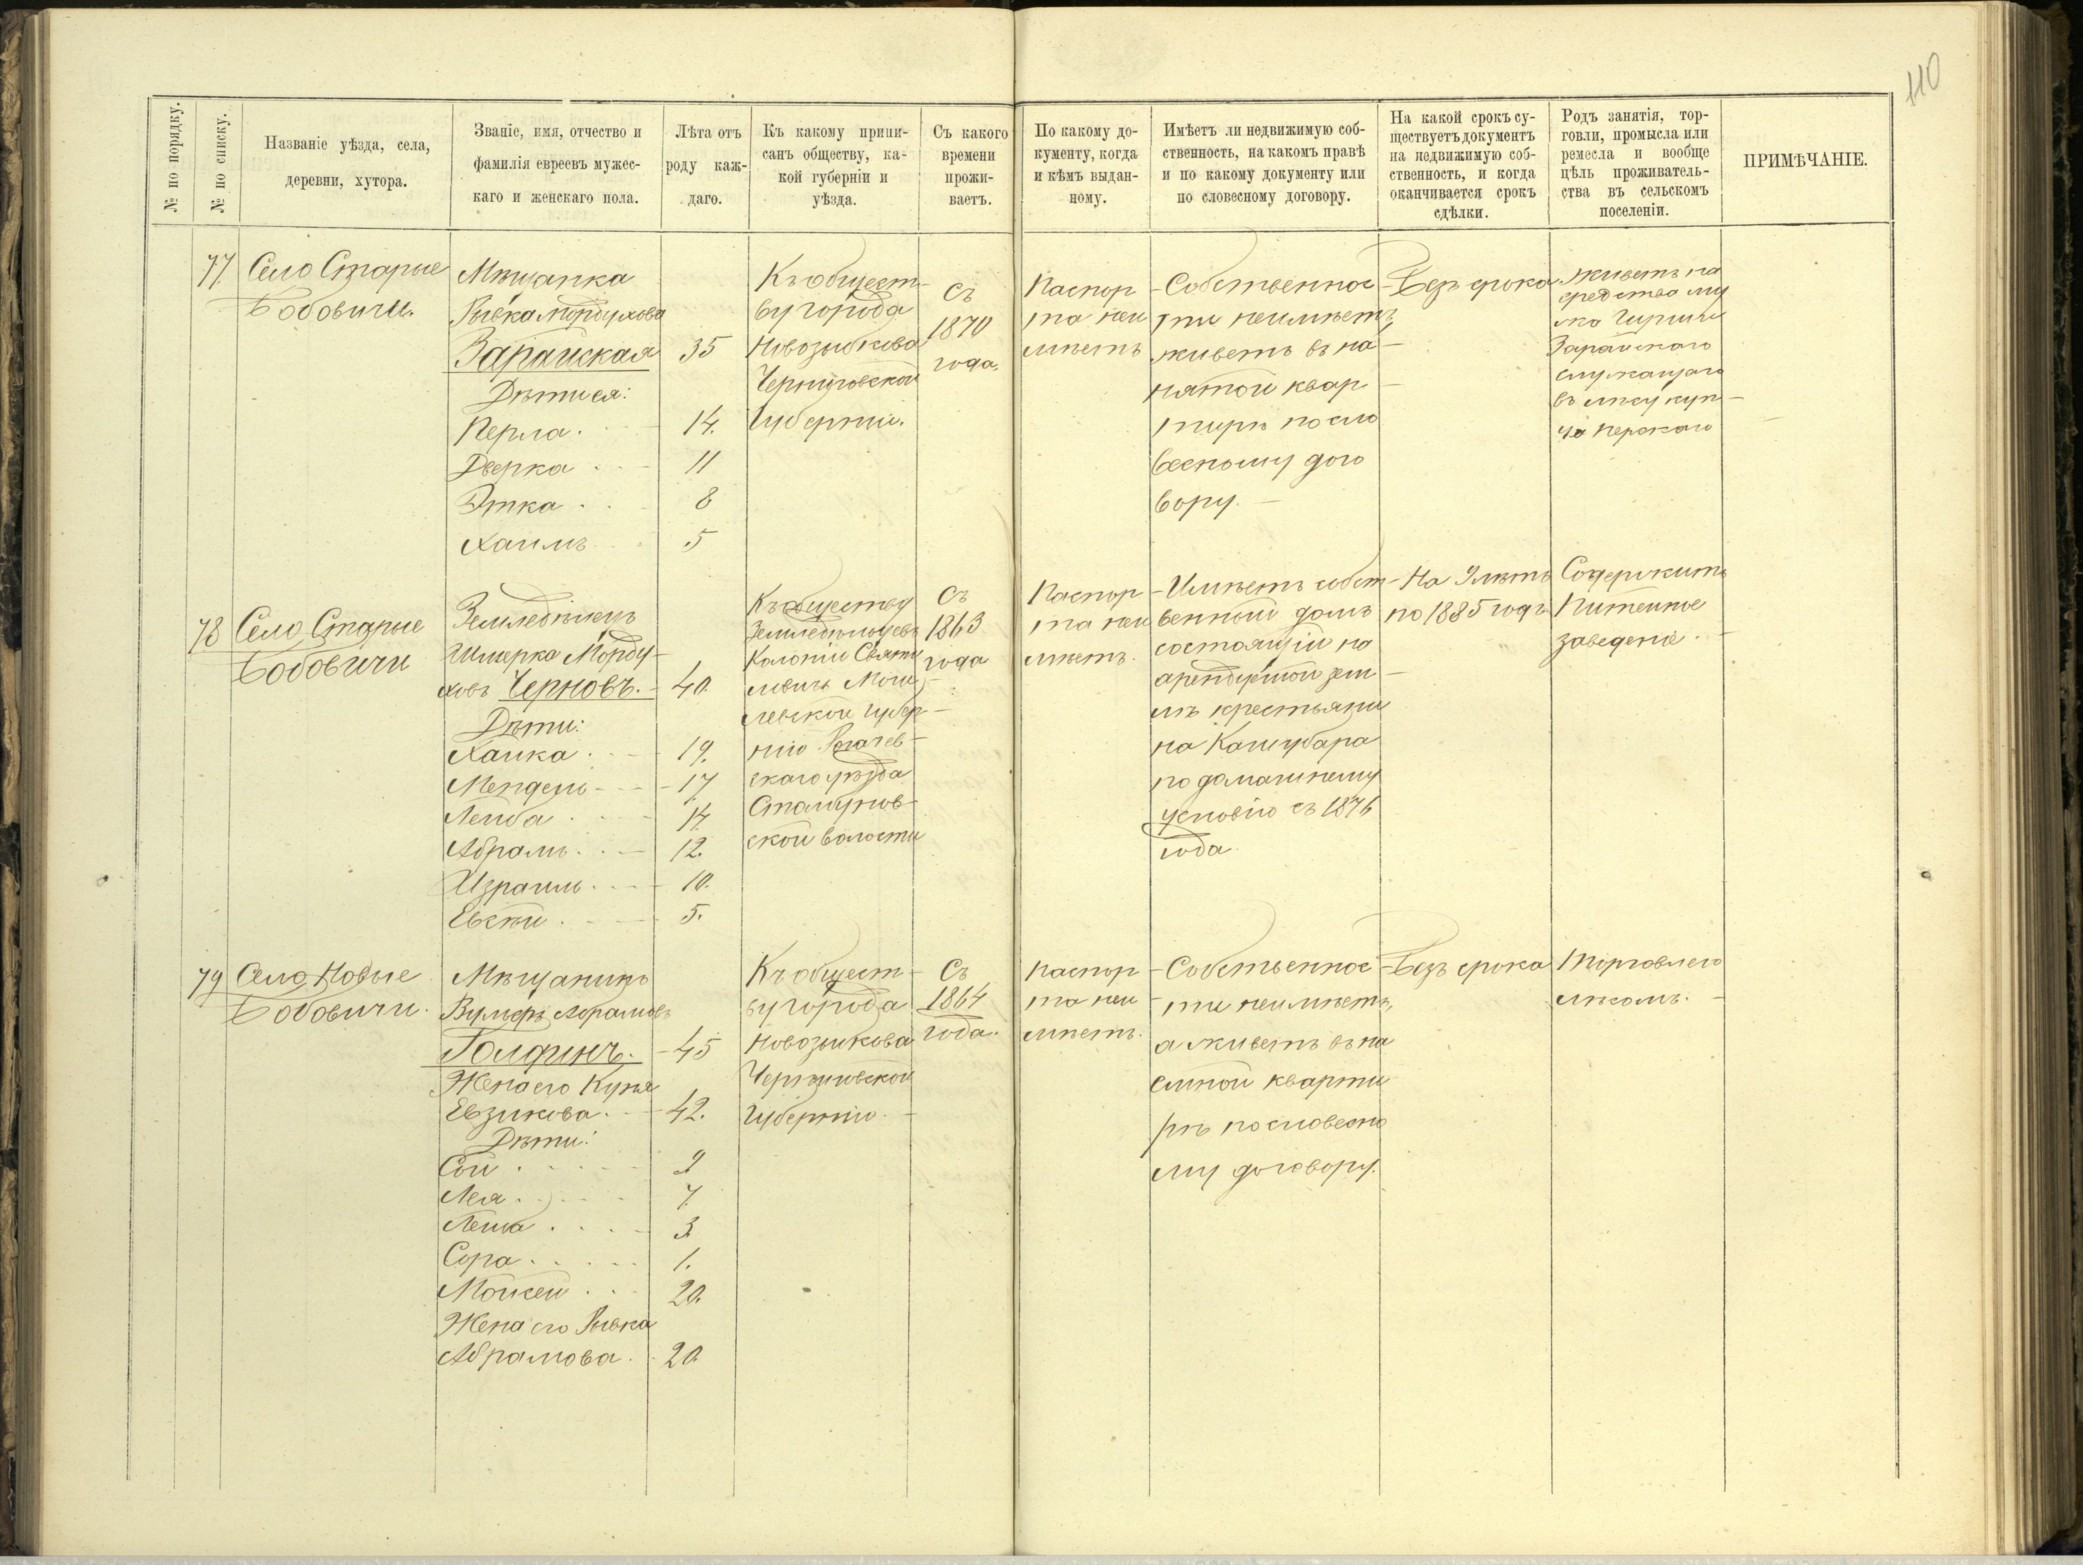 110
№ по порядку.
№ по списку.
Названіе уѣзда, села,
деревни, хутора.
Званіе, имя, отчество и
фамилія евреевъ мужес-
каго и женскаго пола.
Лѣта отъ
роду каж-
даго.
Къ какому припи-
санъ обществу, ка-
кой губерніи и
уѣзда.
Съ какого
времени
прожи-
ваетъ.
По какому до-
кументу, когда
и кѣмъ выдан-
ному.
Имѣетъ ли недвижимую соб-
ственность, на какомъ правѣ
и по какому документу или
по словесному договору.
На какой срокъ су-
ществуетъ документъ
на недвижимую соб-
ственность, и когда
оканчивается срокъ
сдѣлки.
Родъ занятія, тор-
говли, промысла или
ремесла и вообще
цѣль проживатель-
ства въ сельскомъ
поселеніи.
ПРИМѢЧАНІЕ.
77.
Село Старые
Бобовичи.
Мѣщанка
Рывка Мордухова
Зарайская
35
Дѣти ея:
Перла. 14.
Дверка 11
Этка 8
Хаимъ 5
Къ общест-
ву города
Новозыбкова
Черниговской
Губерніи.
Съ
1870
года.
Паспор
та неи
мѣетъ
Собственнос
ти неимѣетъ,
живетъ въ на
нятой квар
тирѣ по сло
весному дого
вору.
Безъ срока
живетъ на
средства му
жа
Зарайскаго
служащаго
въ лѣсу куп
ца
78
Село Старые
Бобовичи
Земледѣлецъ
Шмерка Морду-
ховъ Черновъ. 40.
Дѣти:
Ханка 19.
Мендель 17
Лейба 14
Абрамъ 12.
Израиль 10.
5.
Къ обществу
Земледѣльцевъ
Колоніи
Моги
левской Губер-
ніи Рогачев-
скаго уѣзда
ской волости
Съ
1863
года
Паспор
та неи
мѣетъ.
Имѣетъ собст
венный домъ
состоящій на
арендуемой зем
лѣ крестьяни
на Кашубара
по домашнему
условію съ 1876
года
На 9 лѣтъ
по 1885 годъ
Содержитъ
Питейное
заведеніе.
79
Село Новые
Бобовичи.
Мѣщанинъ
Вульфъ Абрамовъ
Голдинъ. 45
Жена его Куня
Евзикова. 42.
Дѣти:
9
Лея 7.
3
Сора 1.
Моисей 20.
Жена его Рывка
Абрамова. 20
Къ общест
ву города
Новозыбкова
Черниговской
Губерніи.
Съ
1864
года.
Паспор
та неи
мѣетъ.
Собственнос
ти неимѣетъ,
а живетъ въ на
емной кварти
рѣ по словесно
му договору.
Безъ срока
Торговлею
лѣсомъ.